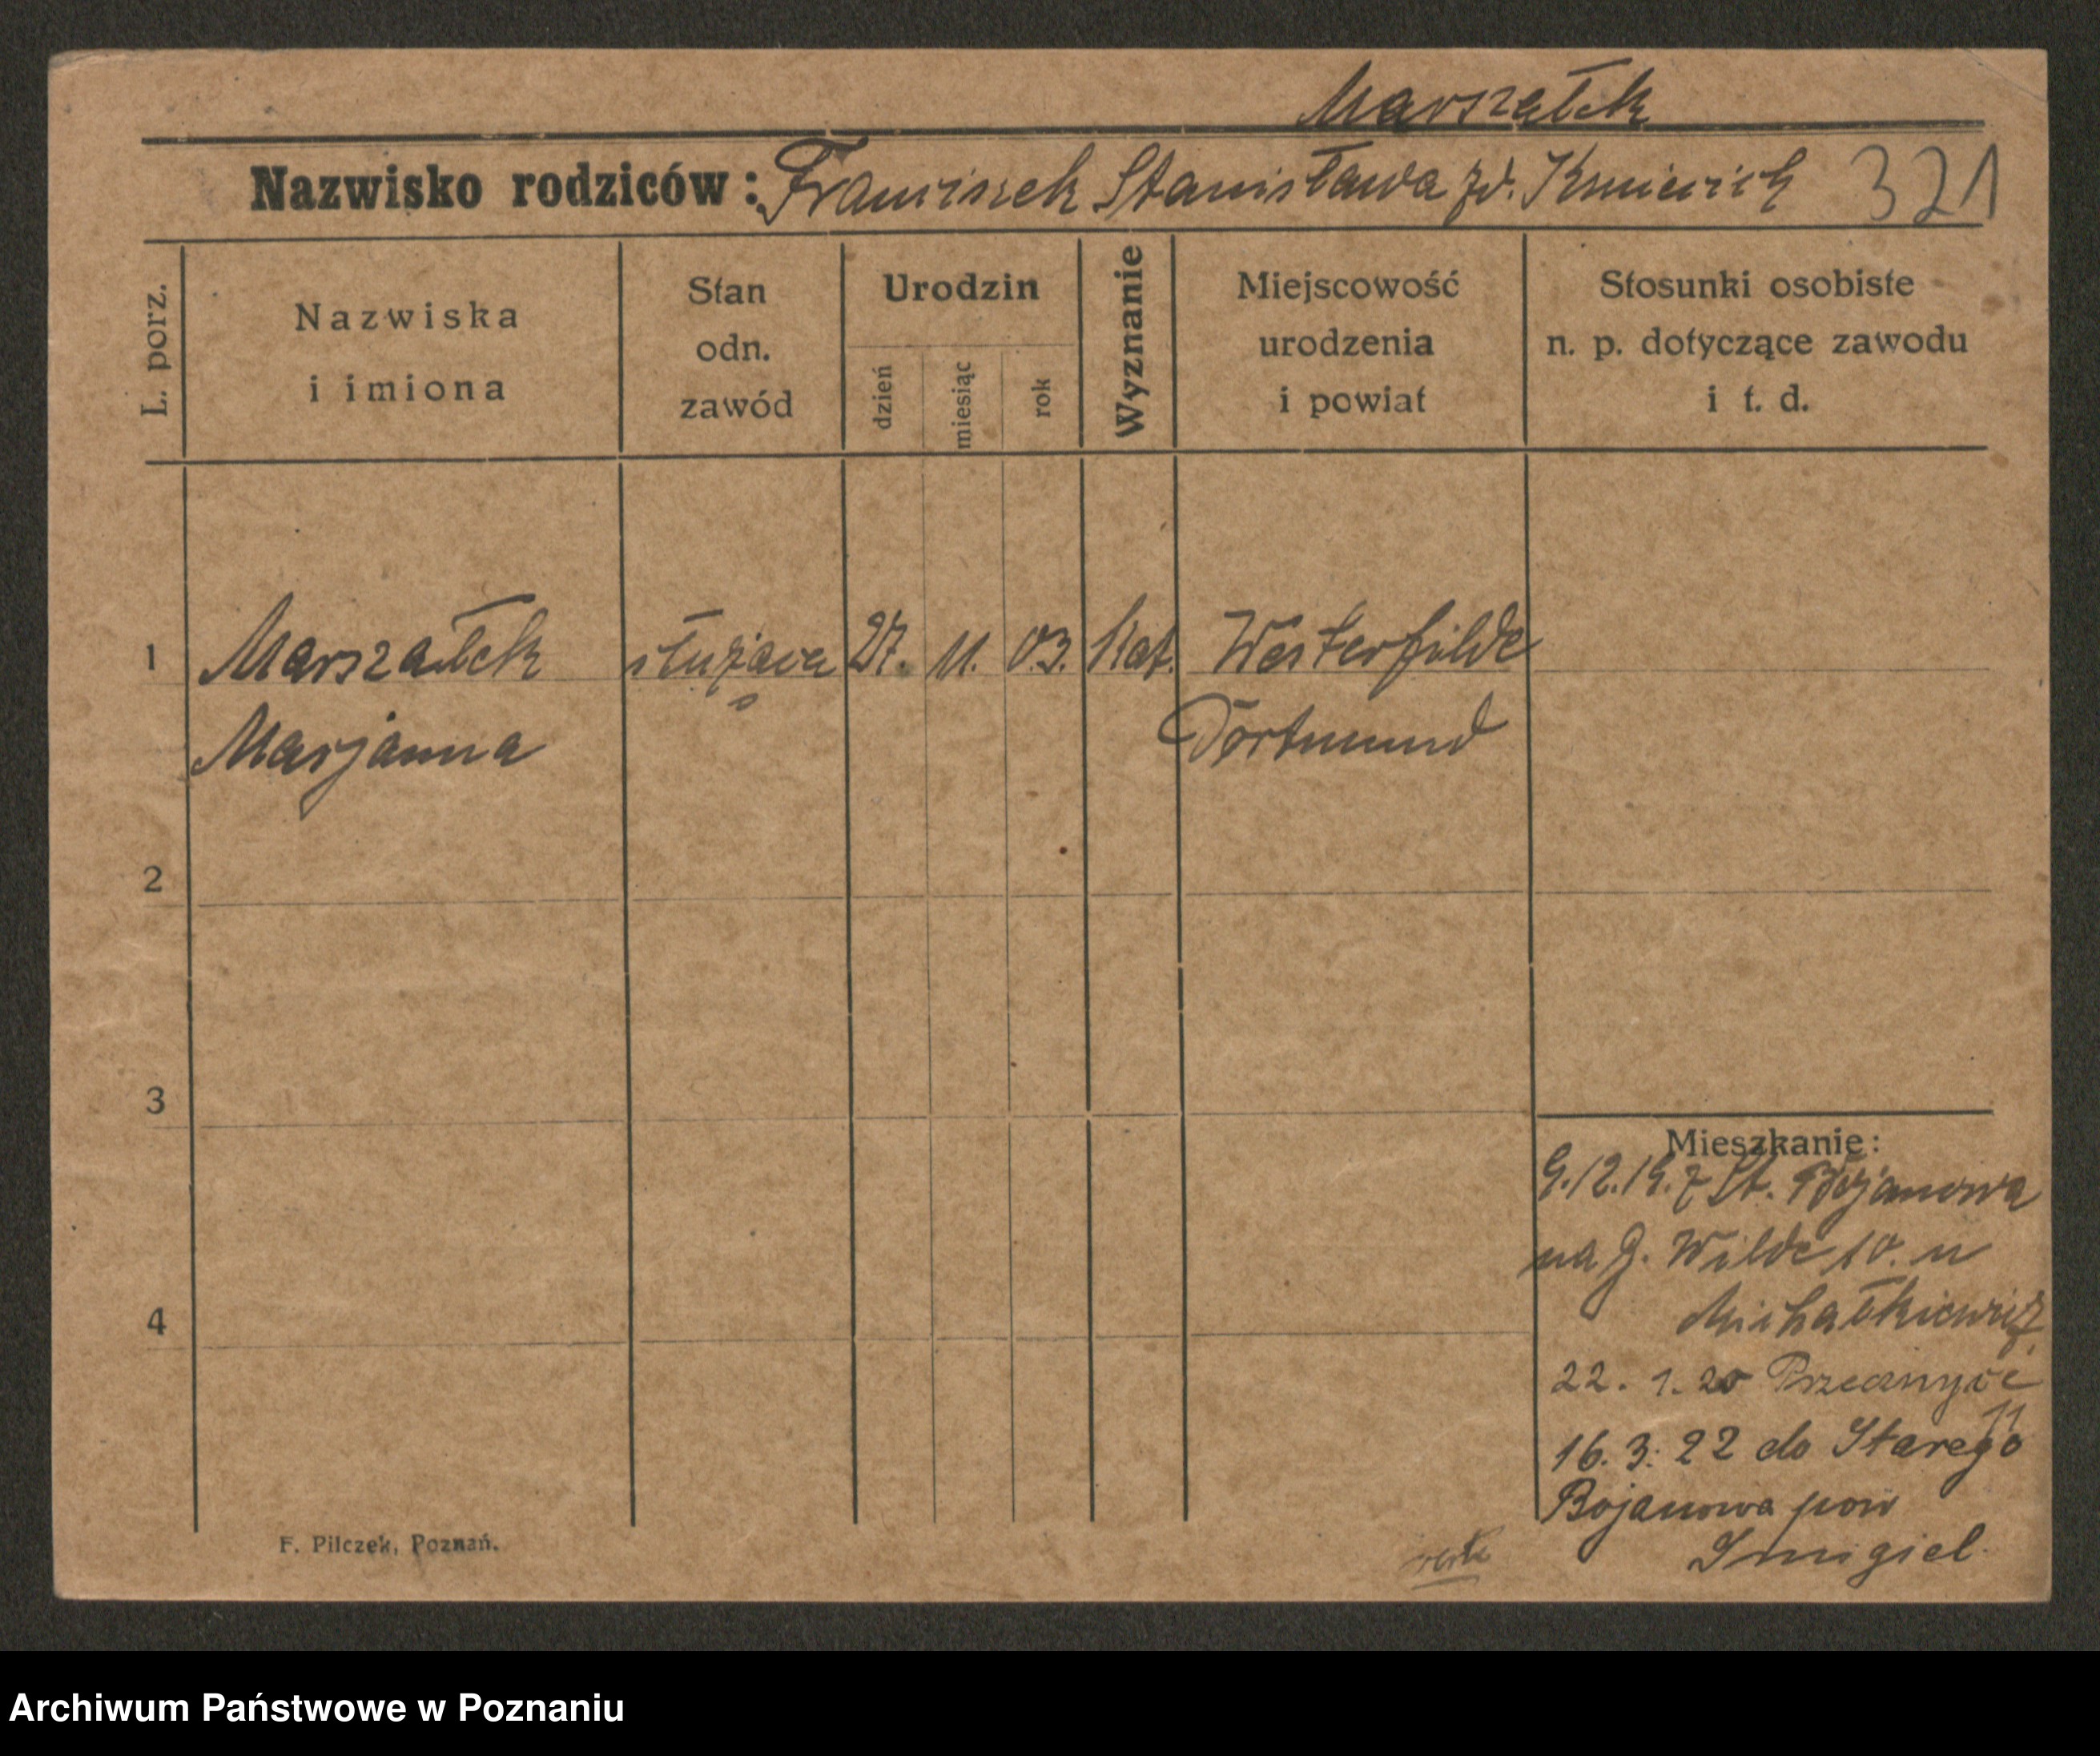 Marszałek
Nazwisko rodziców: Franciszek Stanisława zd. 321
L. porz.
Nazwiska
i imiona
Stan
odn.
zawód
Urodzin
dzień
miesiąc
rok
Wyznanie
Miejscowość
urodzenia
i powiat
Stosunki osobiste
n. p. dotyczące zawodu
i t. d.
1 Marszałek służąca 27. 11. 03. Kat. Westerfilde
Marjanna Dortmund
2
3
4
Mieszkanie:
9.12.19. z St. Bojanowa
na G. Wilde 10. u
Michałkiewicz
22. 1. 20
11
16. 3. 22 do Starego
Bojanowa pow
Smigiel.
F. Pilczek, Poznań.
Archiwum Państwowe w Poznaniu